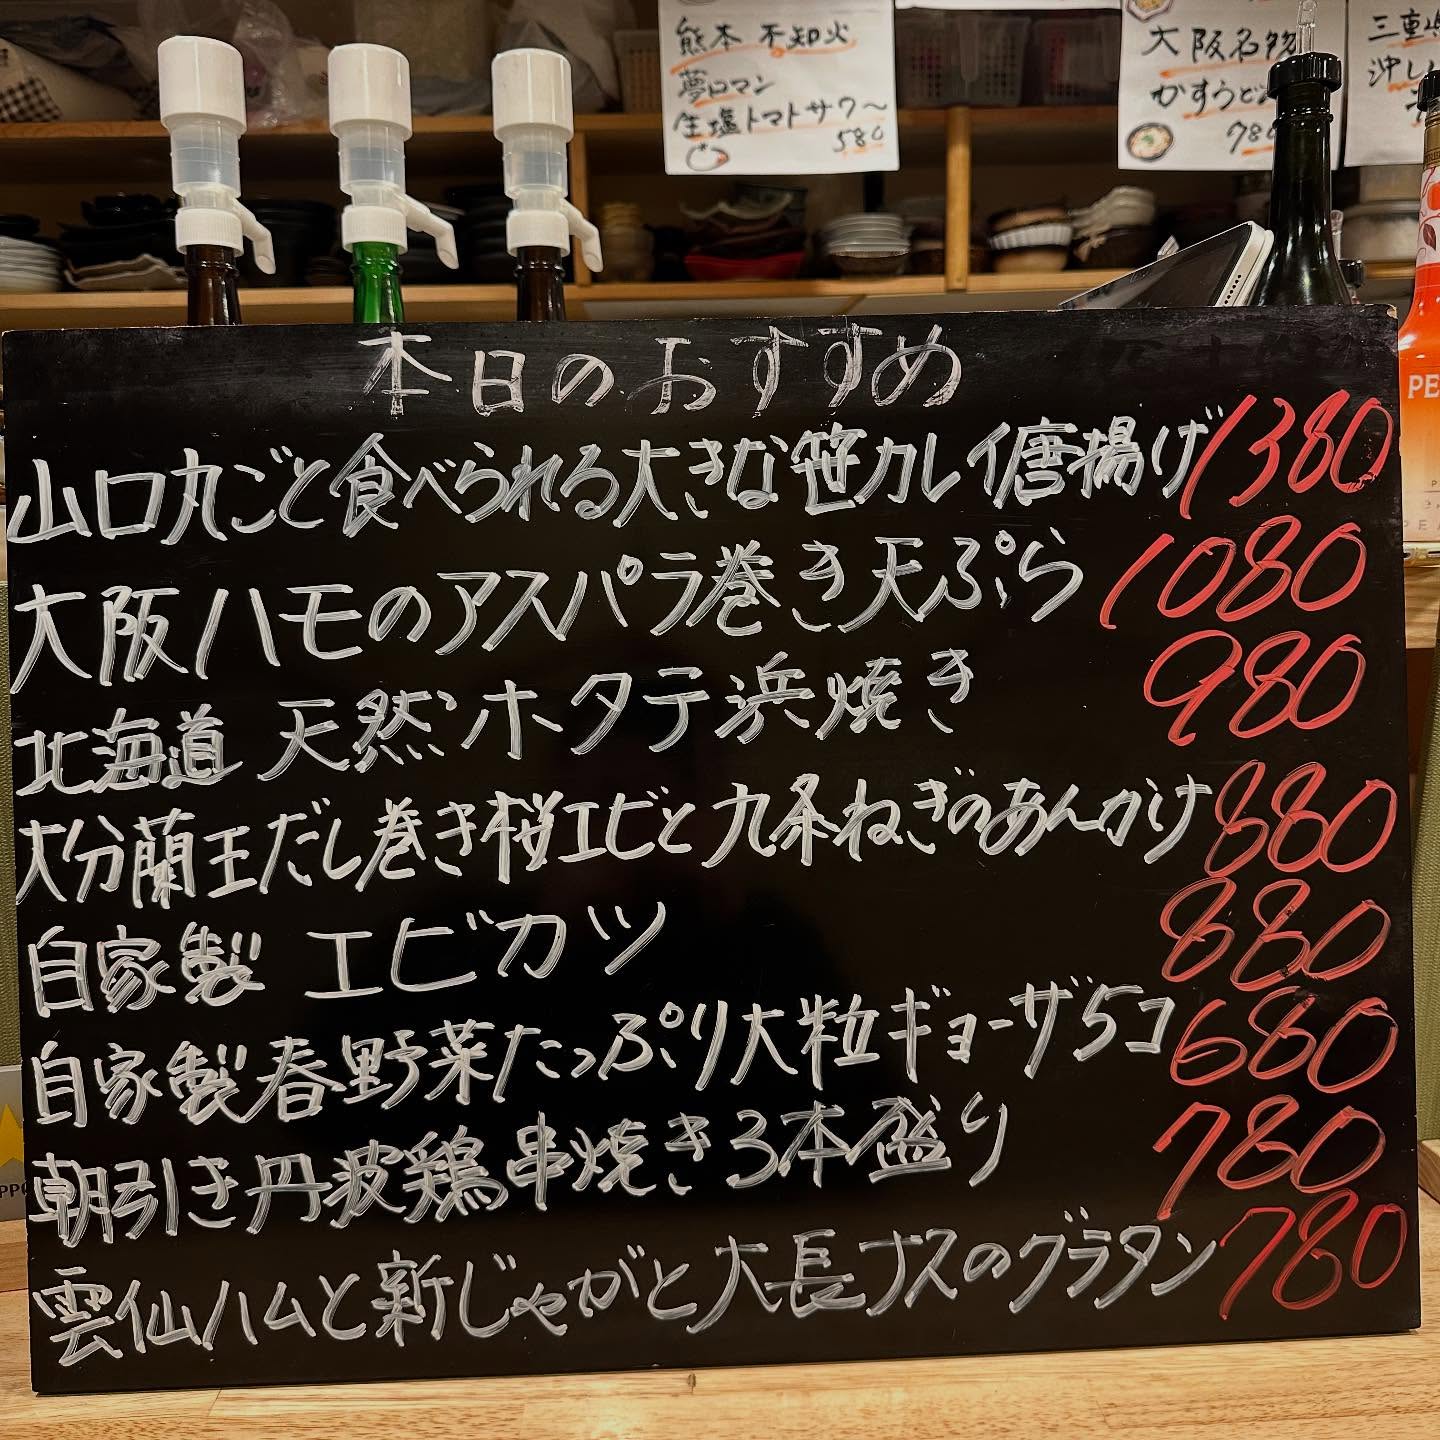 熊本 不知火
夢ロマン
生塩トマトサワ〜
580
大阪名物
かすうどん
780
本日のおすすめ
山口丸ごと食べられる大きな笹カレイ唐揚げ 1380
大阪ハモのアスパラ巻き天ぷら 1080
北海道 天然ホタテ浜焼き 980
大分蘭王だし巻き桜エビと九条ねぎのあんかけ 880
自家製 エビカツ 880
自家製春野菜たっぷり大粒ギョーザ5コ 680
朝引き丹波鶏串焼き3本盛り 780
雲仙ハムと新じゃがと大長ナスのグラタン 780